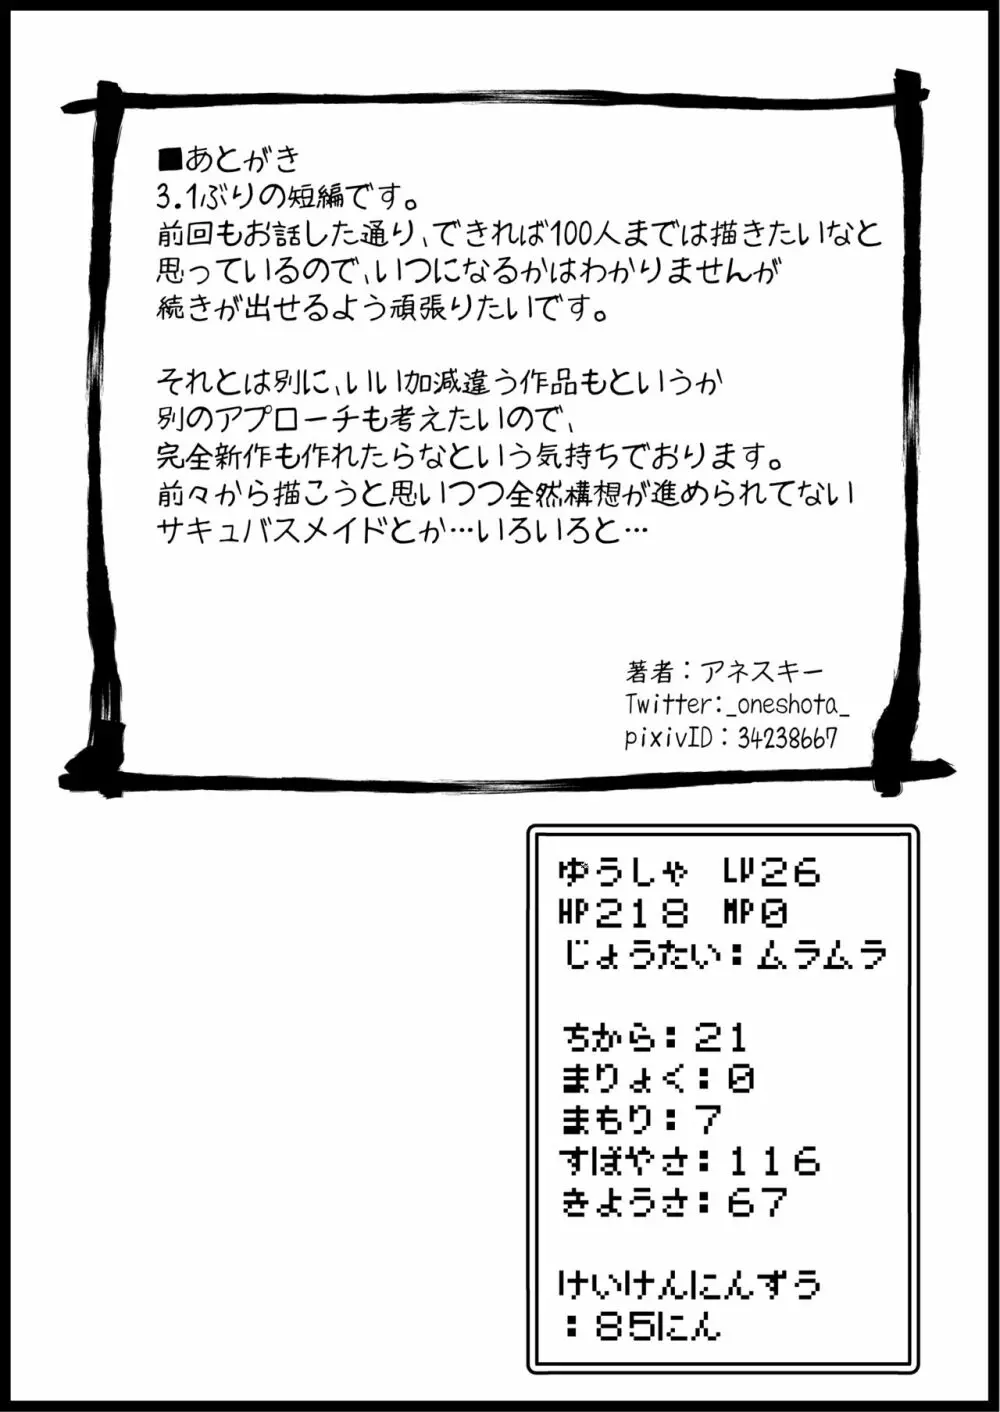 ■あとがき
3.1ぶりの短編です。
前回もお話した通り、できれば100人までは描きたいなと
思っているので、いつになるかはわかりませんが
続きが出せるよう頑張りたいです。
それとは別に、いい加減違う作品もというか
別のアプローチも考えたいので、
完全新作も作れたらなという気持ちでおります。
前々から描こうと思いつつ全然構想が進められてない
サキュバスメイドとか…いろいろと…
著者：アネスキー
Twitter:_oneshota_
pixivID：34238667
ゆうしゃ LV26
HP218 MP0
じょうたい：ムラムラ
ちから：21
まりょく：0
まもり：7
すばやさ：116
きようさ：67
けいけんにんずう
：85にん